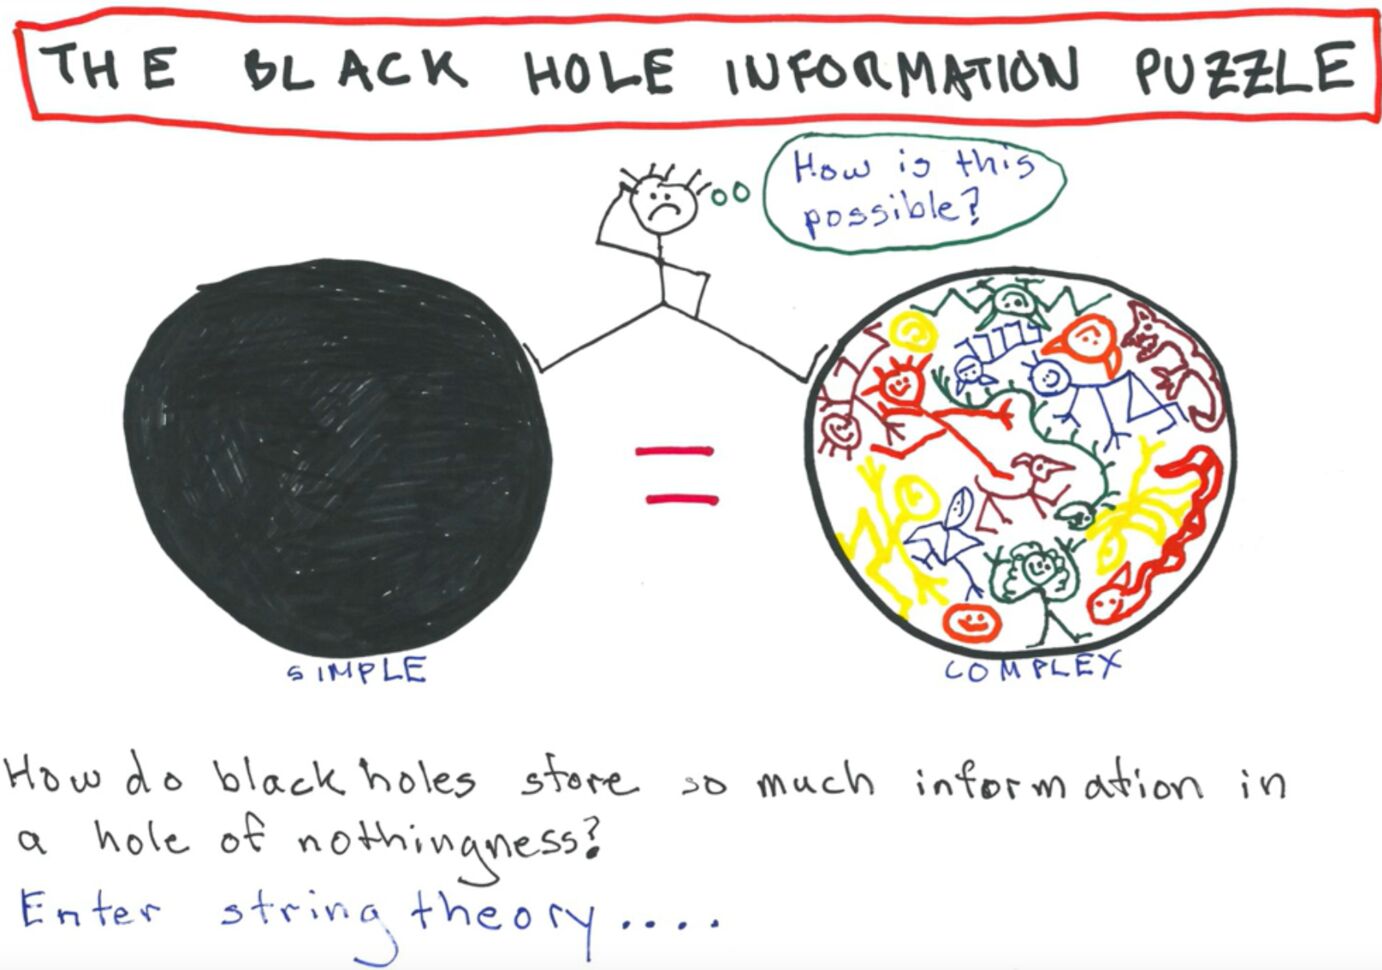 THE BLACK HOLE INFORMATION PUZZLE
How is this
possible?
SIMPLE
COMPLEX
How do black holes store so much information in
a hole of nothingness?
Enter string theory....